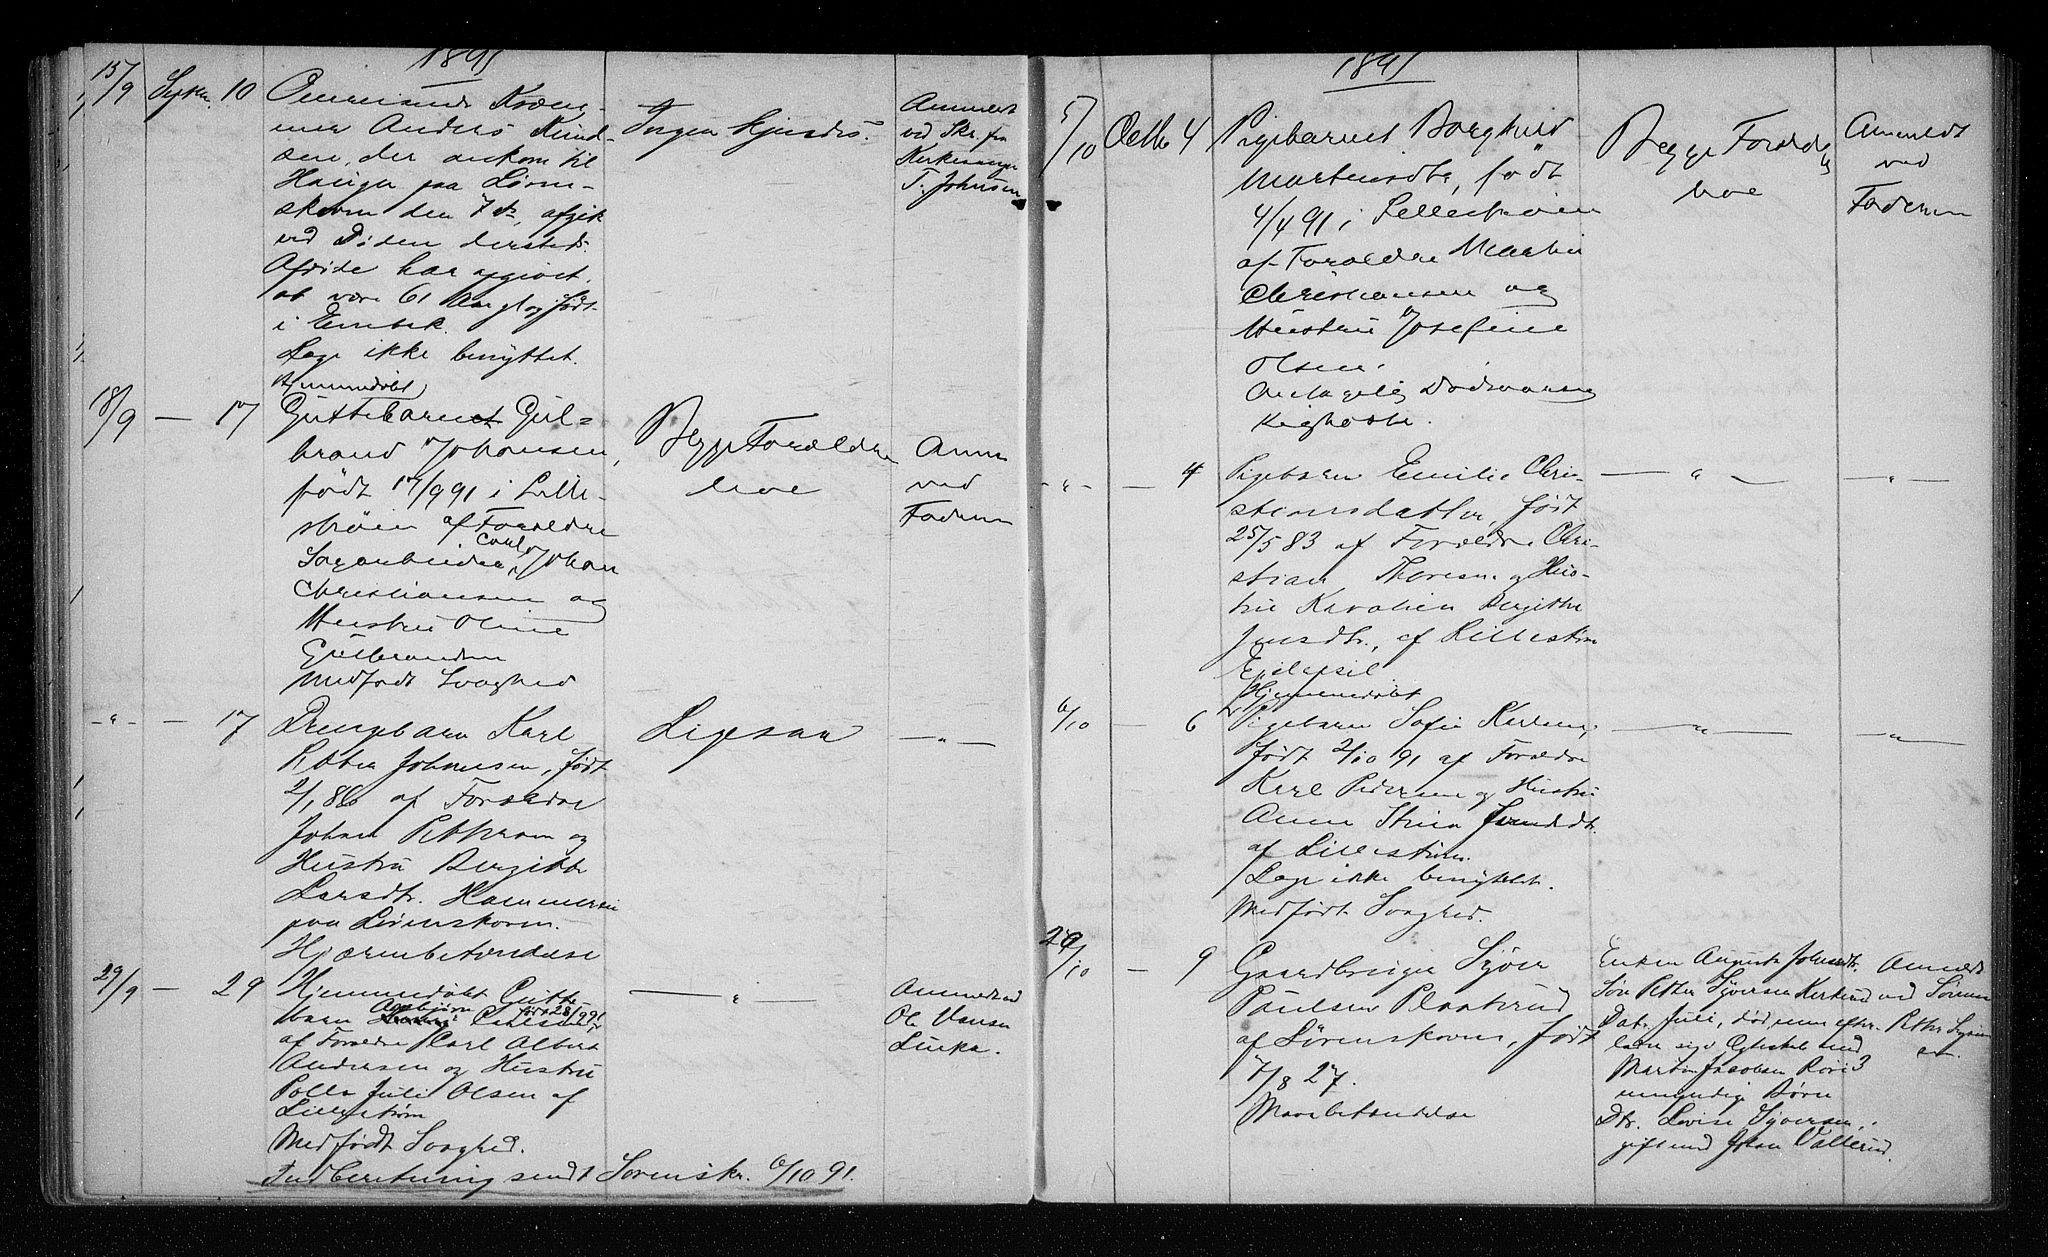 1891
15/9 Septbr. 10 Omreisende Kræm-
mer Anders Knud-
sen, der ankom til
Hauger paa Løren-
skoven den 7 ds, afgik
ved Døden dersteds.
Afdøde har opgivet
at være 61 Aar gl og født
i
Læge ikke benyttet.
Jngen
Anmeldt
ved Skr. fra
Kirkesanger
T. Johnsen
18/9 — 17 Hjemmedøbt
Guttebarnet Gul-
brand Johansen,
født 17/9 91 i Lille-
strøm af Forældre
Sagarbeider Carl Johan
Christiansen og
Hustru Oline
Gulbrandsen
Medfødt Svaghed
Begge Forældre
leve
Anm
ved
Faderen
-"- — 17 Drengebarn Karl
Petter Johansen, født
2/1 86 af Forældre
Johan Pettersen og
Hustru Bergitte
Larsdtr. Hammeren
paa Lørenskoven.
Hjærnebetændelse
Ligesaa
—"—
29/9 — 29 Hjemmedøbt Gutte-
barn Asbjørn Carlsen født 28/9 91
af Forældre Carl Albert
Andersen og Hustru
Julie Olsen af
Lillestrøm
Medfødt Svaghed.
—"—
Anmeldt ved
Ole Hansen
Indberetning sendt Sorenskr. 6/10 91.
1891
5/10 Octbr 4 Pigebarnet Borghild
Martinsdtr, født
4/4 91 i Lillestrøm
af Forældre Martin
Christiansen og
Hustru Josefine
Olsen.
Antagelig Dødsaarsag
Kighoste.
Begge Forældre
leve
Anmeldt
ved
Faderen
-"- — 4 Pigebarn Emilie Chri-
stiansdatter, født
25/5 83 af Forældre Chri-
stian Thoresen og Hus-
tru Karoline Bergitte
Jensdtr., af Lillestrøm
Epilepsi.
—"—
—"—
6/10 — 6 Hjemmedøbt
Pigebarn Sofie Karlsen,
født 2/10 91 af Forældre
Karl Pedersen og Hustru
Anne Stina
af Lillestrøm.
Læge ikke benyttet.
Medfødt Svaghed.
—"—
—"—
29/10 — 9 Gaardbruger Syver
Paulsen
af Lørenskoven, født
7/8 27.
Mavebetændelse
Enken Augusta Johnsdtr.
Søn Petter Syversen
Datr. Juli, død, men efter-
lader sig i Egteskab med
Martin Jacobsen 3
umyndige Børn
Dtr. Lovise Syversen,
gift med Johan Vallerud.
Anmeldt
ved Sønnen
Petter Syver-
sen.